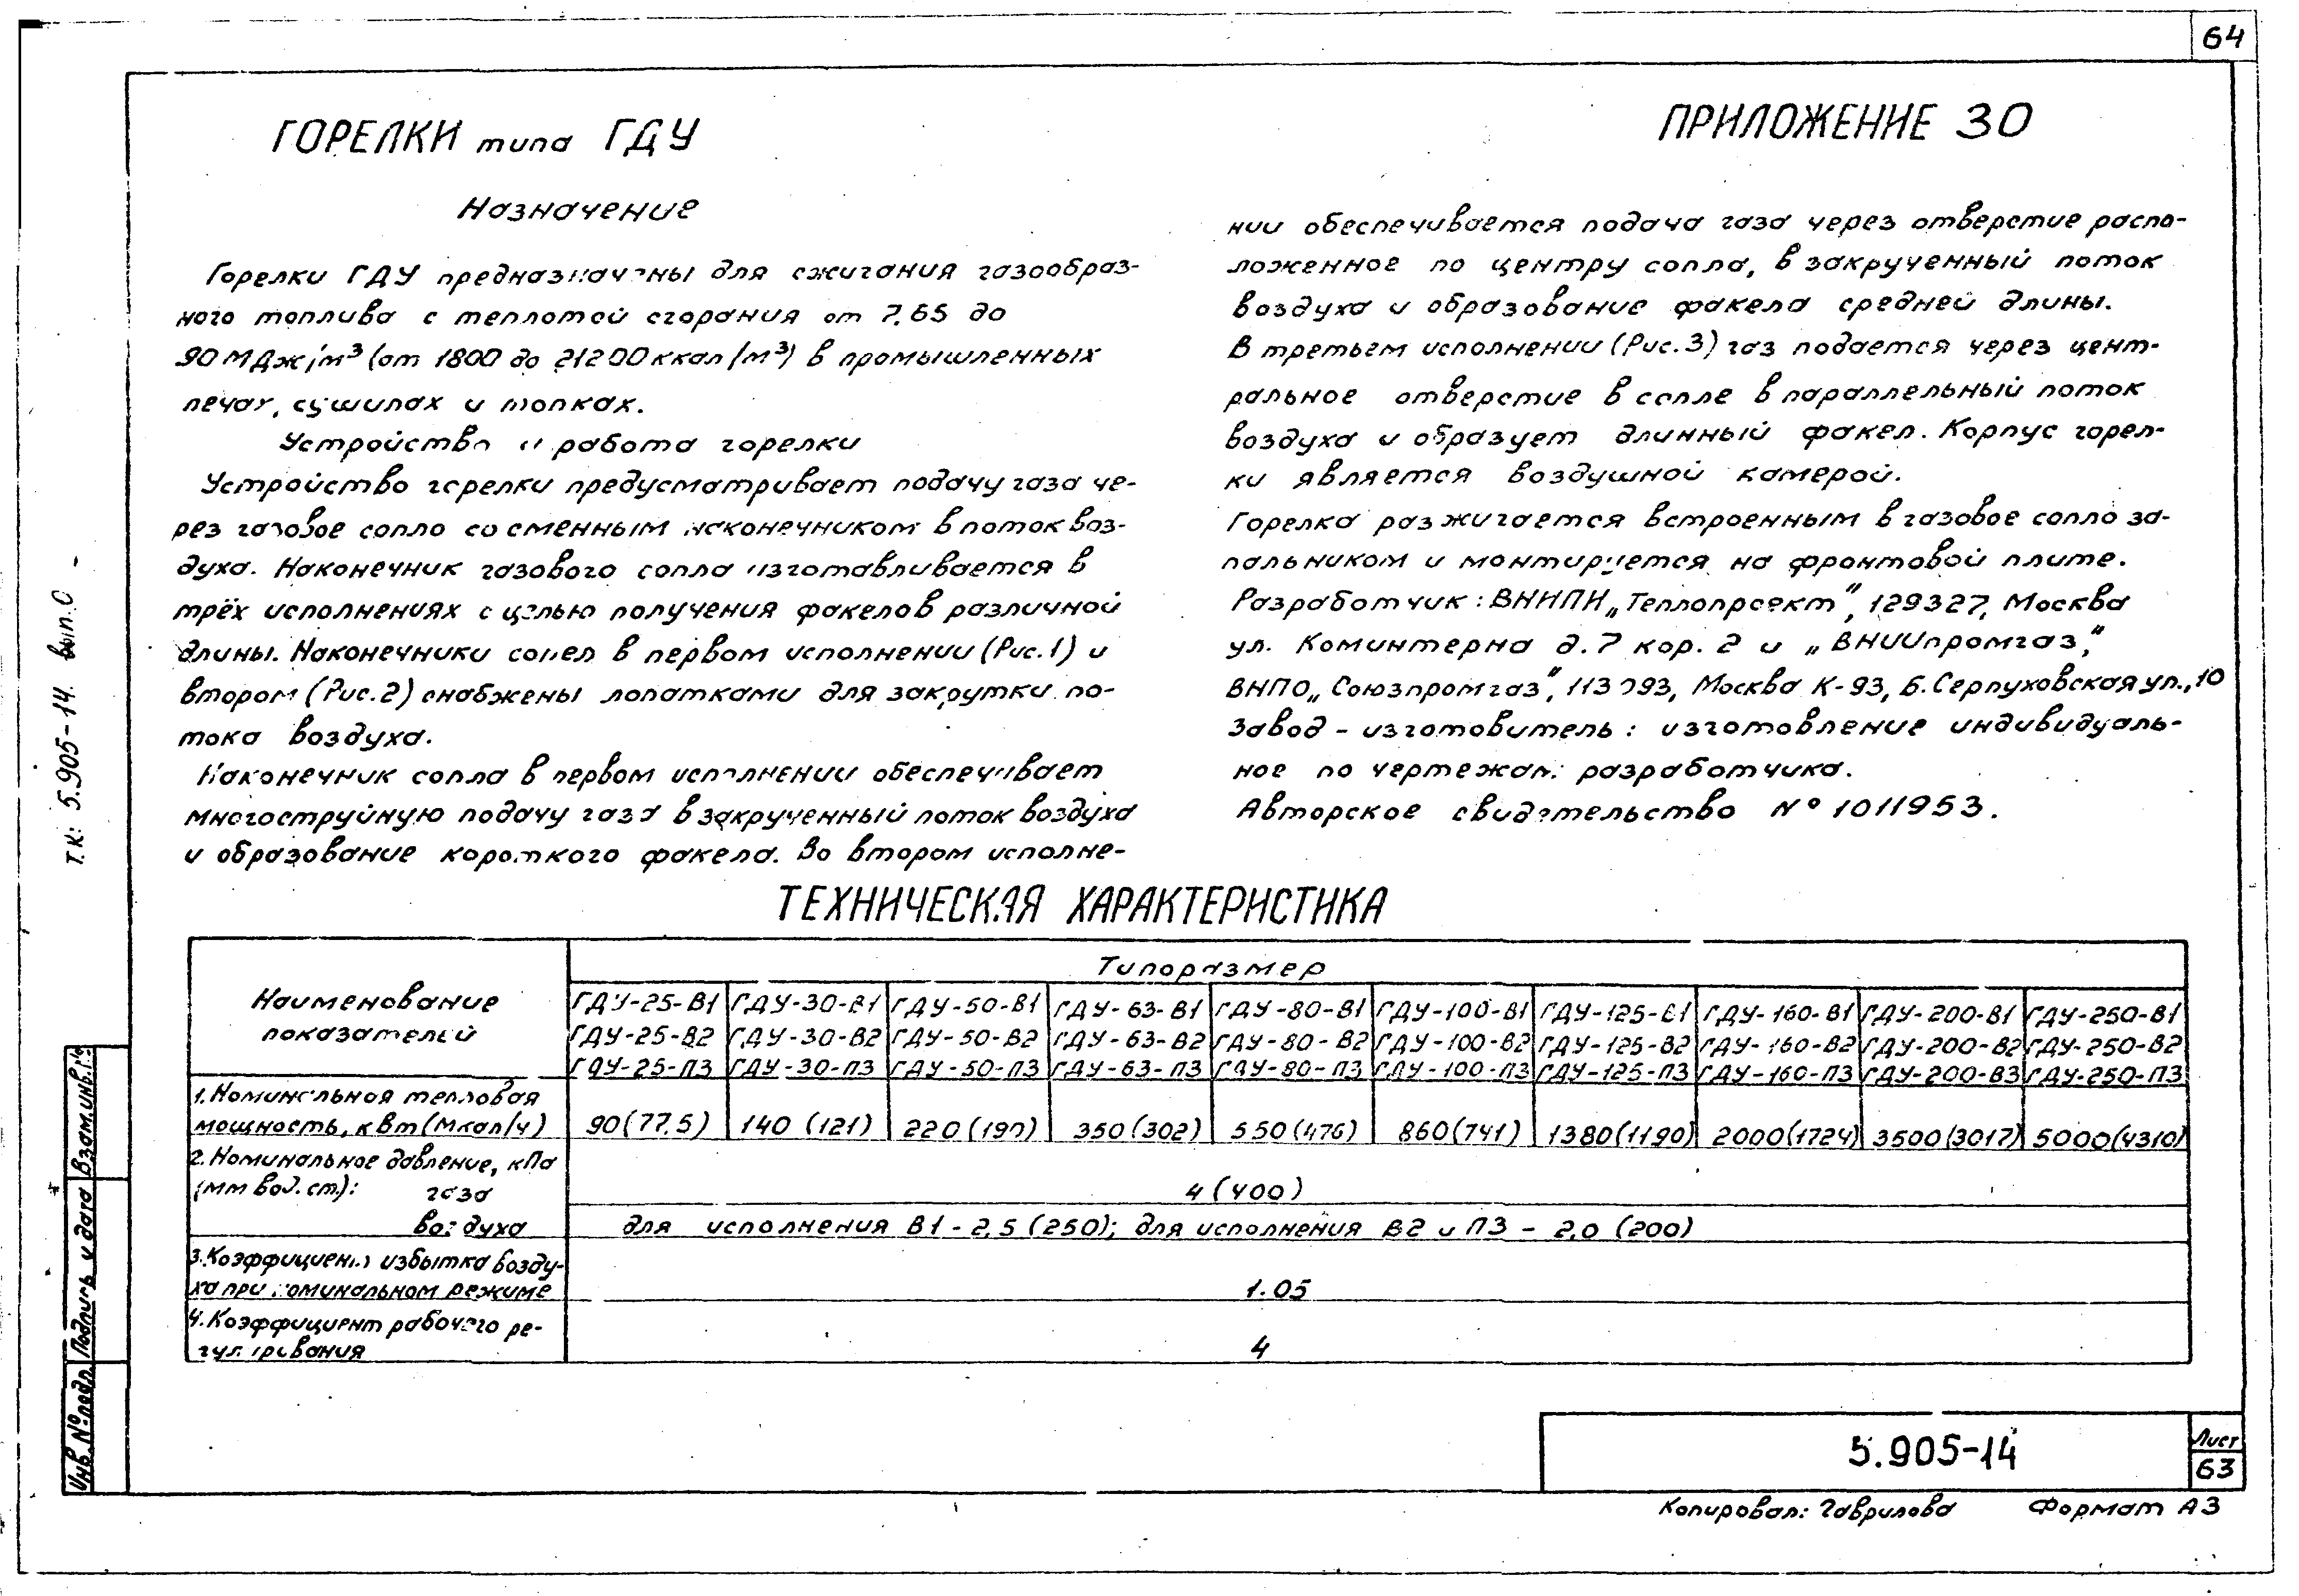 64
ГОРЕЛКИ типа ГДУ
ПРИЛОЖЕНИЕ 30
Назначение
Горелки ГДУ предназначены для сжигания газообраз-
ного топлива с теплотой сгорания от 7,65 до
90 МДж/м³ (от 1800 до 21200 ккал/м³) в промышленных
печах, сушилах и топках.
Устройство и работа горелки
Устройство горелки предусматривает подачу газа че-
рез газовое сопло со сменным наконечником в поток воз-
духа. Наконечник газового сопла изготавливается в
трёх исполнениях с целью получения факелов различной
длины. Наконечники сопел в первом исполнении (Рис.1) и
втором (Рис.2) снабжены лопатками для закрутки по-
тока воздуха.
Наконечник сопла в первом исполнении обеспечивает
многоструйную подачу газа в закрученный поток воздуха
и образование короткого факела. Во втором исполне-
нии обеспечивается подача газа через отверстие распо-
ложенное по центру сопла, в закрученный поток
воздуха и образование факела средней длины.
В третьем исполнении (Рис.3) газ подается через цент-
ральное отверстие в сопле в параллельный поток
воздуха и образует длинный факел. Корпус горел-
ки является воздушной камерой.
Горелка разжигается встроенным в газовое сопло за-
пальником и монтируется на фронтовой плите.
Разработчик: ВНИПИ „Теплопроект", 129327, Москва
ул. Коминтерна д.7 кор. 2 и „ВНИИпромгаз,"
ВНПО „Союзпромгаз", 113093, Москва К-93, Б. Серпуховская ул., 10
Завод - изготовитель: изготовление индивидуаль-
ное по чертежам разработчика.
Авторское свидетельство № 1011953.
ТЕХНИЧЕСКАЯ ХАРАКТЕРИСТИКА
Наименование показателей
Типоразмер
ГДУ-25-В1 ГДУ-30-В1 ГДУ-50-В1 ГДУ-63-В1 ГДУ-80-В1 ГДУ-100-В1 ГДУ-125-В1 ГДУ-160-В1 ГДУ-200-В1 ГДУ-250-В1
ГДУ-25-В2 ГДУ-30-В2 ГДУ-50-В2 ГДУ-63-В2 ГДУ-80-В2 ГДУ-100-В2 ГДУ-125-В2 ГДУ-160-В2 ГДУ-200-В2 ГДУ-250-В2
ГДУ-25-П3 ГДУ-30-П3 ГДУ-50-П3 ГДУ-63-П3 ГДУ-80-П3 ГДУ-100-П3 ГДУ-125-П3 ГДУ-160-П3 ГДУ-200-В3 ГДУ-250-П3
1. Номинальная тепловая
мощность, кВт (Мкал/ч) 90(77.5) 140 (121) 220 (190) 350 (302) 550 (476) 860(741) 1380(1190) 2000(1724) 3500(3017) 5000(4310)
2. Номинальное давление, кПа
(мм вод. ст.): газа 4 (400)
воздуха для исполнения В1 - 2,5 (250); для исполнения В2 и П3 - 2,0 (200)
3. Коэффициент избытка возду-
ха при номинальном режиме 1.05
4. Коэффициент рабочего ре-
гулирования 4
5.905-14
Лист
63
Копировал: Гаврилова Формат А3
Т.К: 5.905-14 вып.0
Взам.инв.№
Подпись и дата
Инв.№ подл.